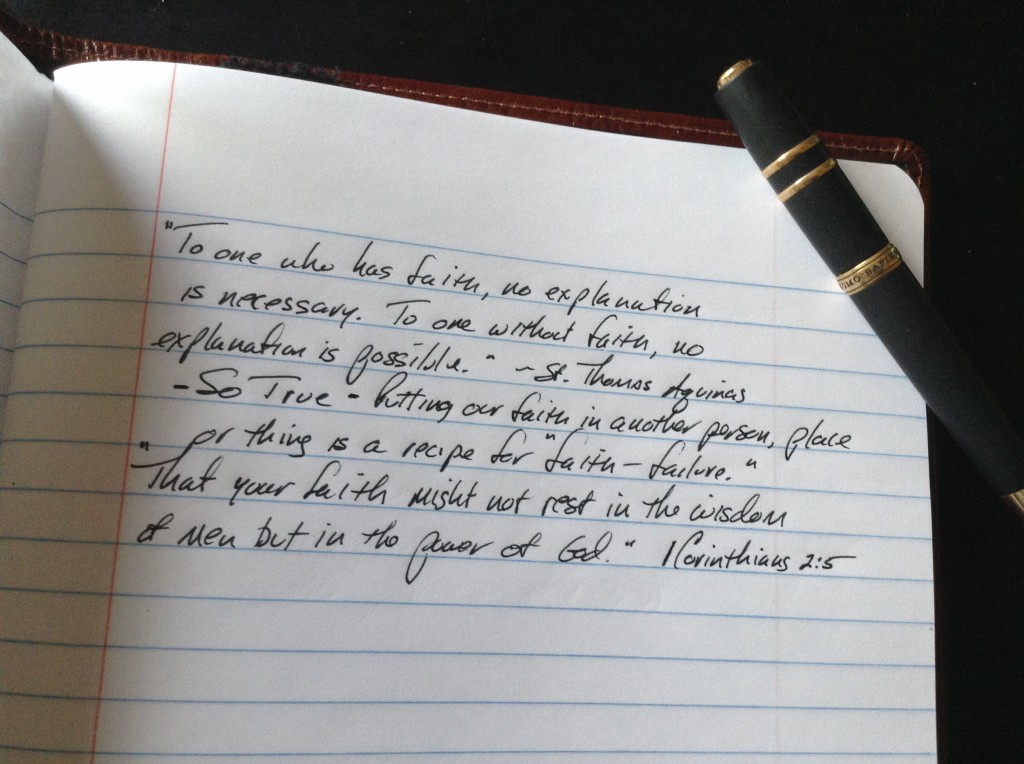 "To one who has faith, no explanation
is necessary. To one without faith, no
explanation is possible." ~ St. Thomas Aquinas
- So True - Putting our faith in another person, place
or thing is a recipe for "faith - failure."
"That your faith might not rest in the wisdom
of men but in the power of God." 1 Corinthians 2:5
OMO SAPIE